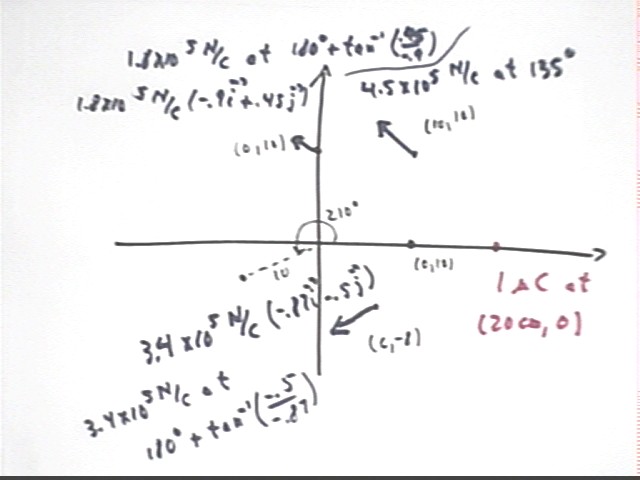 1.8x10⁵ N/C at 180° + tan⁻¹(.45/-.9)
1.8x10⁵ N/C (-.9i + .45j)
4.5x10⁵ N/C at 135°
(10,10)
(0,10)
210°
10
(0,10)
1 µC at
(20cm, 0)
3.4x10⁵ N/C (-.87i - .5j)
(6,-8)
3.4x10⁵ N/C at
180° + tan⁻¹(-.5/-.87)